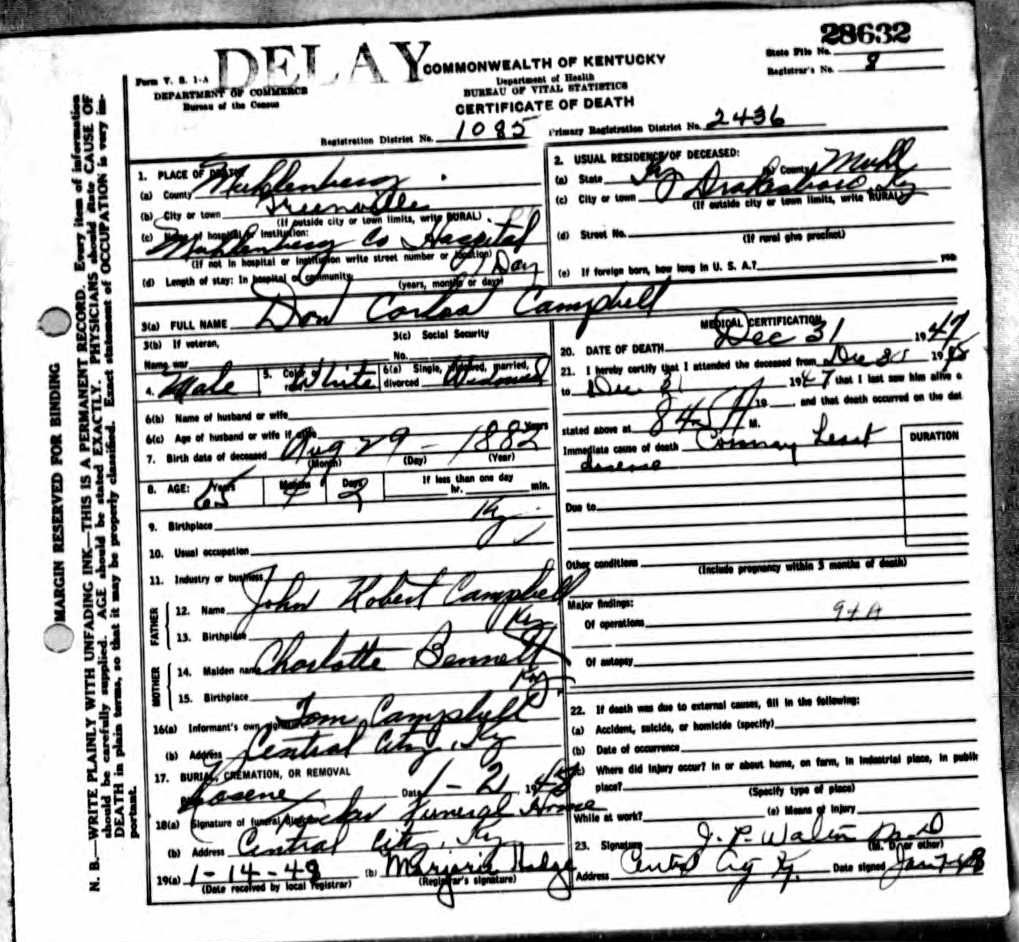 28632
DELAY
Form V. S. 1-A
DEPARTMENT OF COMMERCE
Bureau of the Census
COMMONWEALTH OF KENTUCKY
Department of Health
BUREAU OF VITAL STATISTICS
CERTIFICATE OF DEATH
State File No.
Registrar's No. 8
Registration District No. 1085 Primary Registration District No. 2436
MARGIN RESERVED FOR BINDING
N. B.—WRITE PLAINLY WITH UNFADING INK—THIS IS A PERMANENT RECORD. Every item of information
should be carefully supplied. AGE should be stated EXACTLY. PHYSICIANS should state CAUSE OF
DEATH in plain terms, so that it may be properly classified. Exact statement of OCCUPATION is very im-
portant.
1. PLACE OF DEATH
(a) County Muhlenberg
(b) City or town Greenville
(If outside city or town limits, write RURAL)
(c) Name of hospital or institution:
Muhlenberg Co Hospital
(If not in hospital or institution write street number or location)
(d) Length of stay: In hospital or community 1 Day
(years, months or days)
2. USUAL RESIDENCE OF DECEASED:
(a) State Ky (b) County Muhl
(c) City or town Drakesboro Ky
(If outside city or town limits, write RURAL)
(d) Street No.
(If rural give precinct)
(e) If foreign born, how long in U. S. A.? yrs
3(a) FULL NAME Don Carlos Campbell
3(b) If veteran,
Name war
3(c) Social Security
No.
4. Male 5. Color or race White 6(a) Single, widowed, married, divorced Widowed
6(b) Name of husband or wife
6(c) Age of husband or wife if alive Years
7. Birth date of deceased Aug 29 - 1882
(Month) (Day) (Year)
8. AGE: Years 65 Months 4 Days 2 If less than one day
hr. min.
9. Birthplace Ky.
10. Usual occupation
11. Industry or business
FATHER
12. Name John Robert Campbell
13. Birthplace Ky
MOTHER
14. Maiden name Charlotte Bennett
15. Birthplace Ky.
16(a) Informant's own signature Tom Campbell
(b) Address Central City, Ky
17. BURIAL, CREMATION, OR REMOVAL
Date 1-2, 1948
18(a) Signature of funeral director Tucker Funeral Home
(b) Address Central City, Ky
19(a) 1-14-48 (b) Marjorie
(Date received by local registrar) (Registrar's signature)
MEDICAL CERTIFICATION
20. DATE OF DEATH Dec 31 1947
21. I hereby certify that I attended the deceased from Dec 31 19
to Dec 31 1947 that I last saw him alive o
19 , and that death occurred on the dat
stated above at 845 A M.
Immediate cause of death Coronary Heart
disease
DURATION
Due to
Other conditions
(Include pregnancy within 3 months of death)
Major findings:
Of operations 94A
Of autopsy
22. If death was due to external causes, fill in the following:
(a) Accident, suicide, or homicide (specify)
(b) Date of occurrence
(c) Where did injury occur? In or about home, on farm, in industrial place, in public
place?
(Specify type of place)
While at work? (e) Means of injury
23. Signature J. P. Walton
(M. D. or other)
Address Central City Ky. Date signed Jan